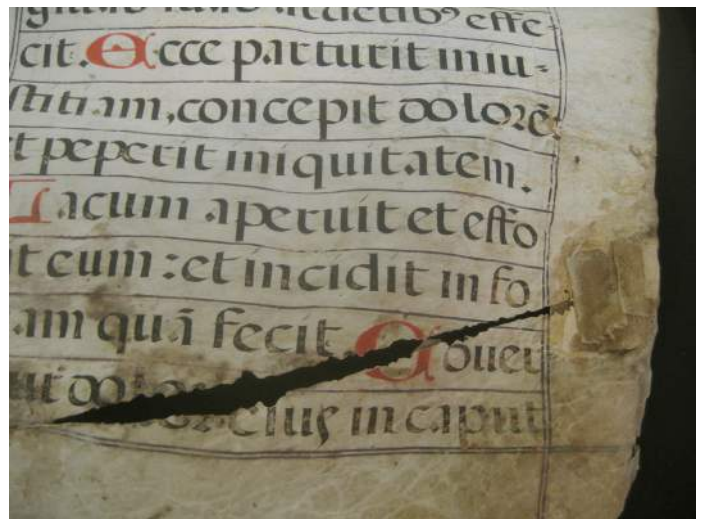 effe-
cit. Ecce parturit iniu-
stitiam, concepit dolorē
t peperit iniquitatem.
Lacum aperuit et effo
it eum : et incidit in fo
am quā fecit. Couer
eius in caput